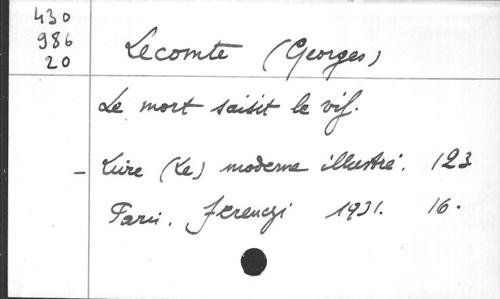 430
986
20
Lecomte (Georges)
Le mort saisit le vif.
- Livre (Le) moderne illustré. 123
Paris. Ferenczi 1931. 16.